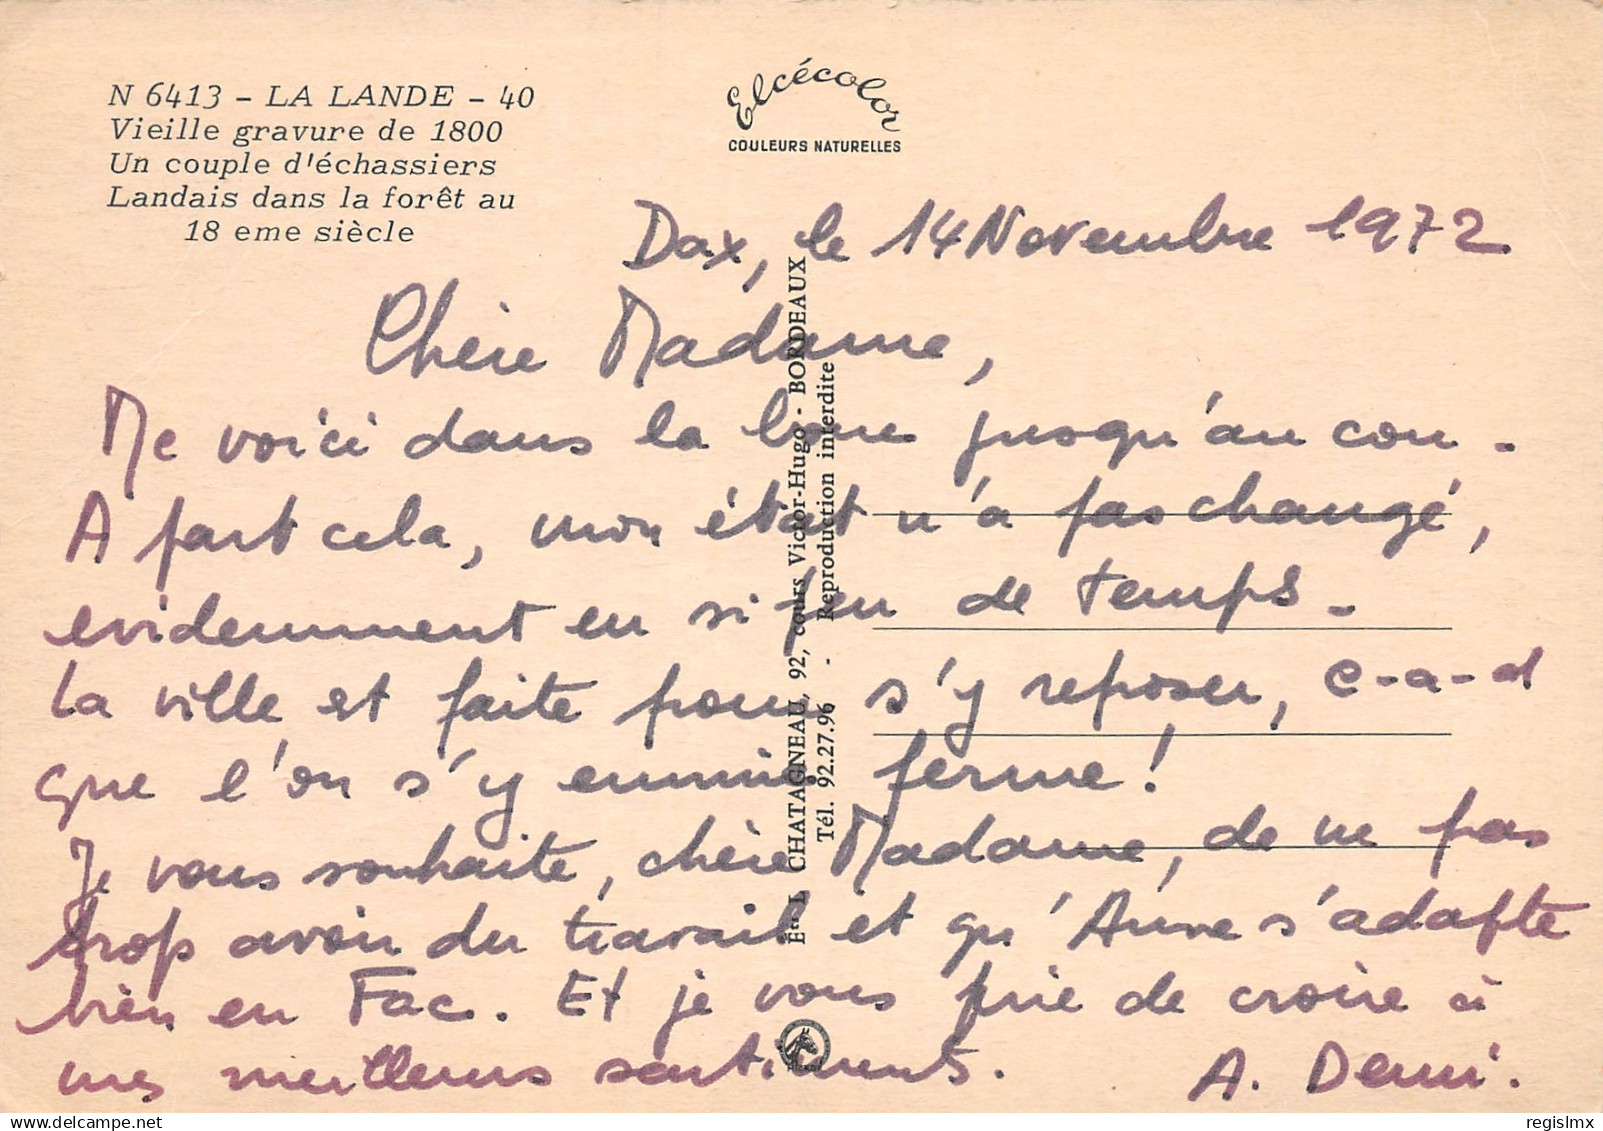 N 6413 - LA LANDE - 40
Vieille gravure de 1800
Un couple d'échassiers
Landais dans la forêt au
18 eme siècle
Elcécolor
COULEURS NATURELLES
Dax, le 14 Novembre 1972
Chère Madame,
Me voici dans la boue jusqu'au cou.
A part cela, mon état n'a pas changé,
evidemment en si peu de temps.
La ville est faite pour s'y reposer, c-a-d
que l'on s'y ennuie ferme!
Je vous souhaite, chère Madame, de ne pas
trop avoir du travail et qu'Anne s'adapte
bien en Fac. Et je vous prie de croire à
mes meilleurs sentiments.
A. Demi.
Éts L. CHATAGNEAU, 92, cours Victor-Hugo - BORDEAUX
Tél. 92.27.96 - Reproduction interdite
regislmx